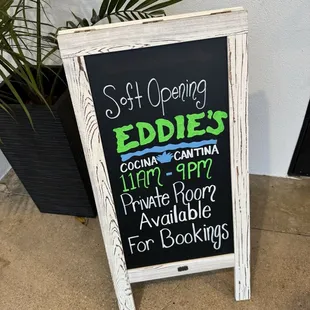 Soft Opening
EDDIE'S
COCINA CANTINA
11AM - 9PM
Private Room
Available
For Bookings